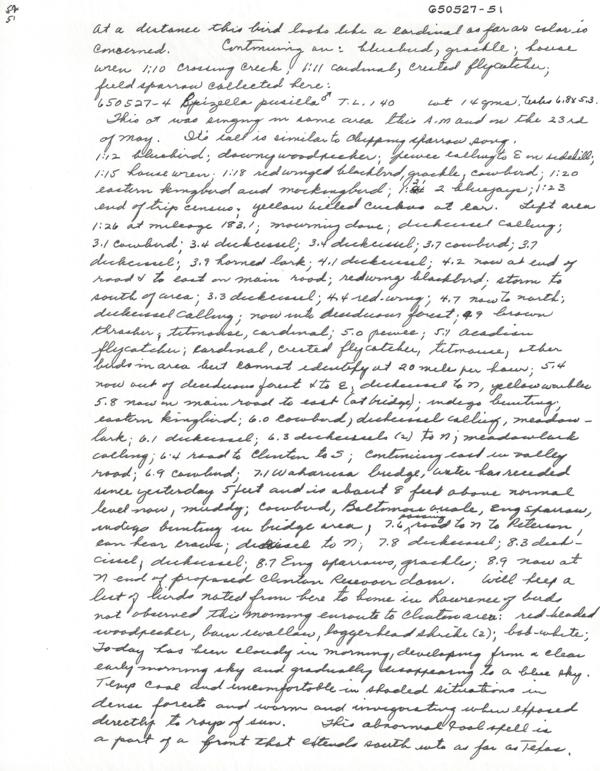 54
51
650527-51
At a distance this bird looks like a cardinal as far as color is
concerned. Continuing on: bluebird, grackle; house
wren 1:10 crossing creek; 1:11 cardinal, crested flycatcher;
field sparrow collected here:
650527-4 Spizella pusilla ♂ T.L. 140 wt 14 gms. Testes 6.8x5.3.
This ♂ was singing in same area this A.M and on the 23rd
of May. It's call is similar to Chipping sparrow song.
1:12 bluebird; downy woodpecker; pewee calling to E on sidehill;
1:15 house wren; 1:18 redwinged blackbird, grackle, cowbird; 1:20
eastern kingbird and mockingbird; 2 bluejays; 1:23
end of trip census; yellow billed cuckoo at car. Left area
1:26 at mileage 183.1; mourning dove; dickcissel calling;
3.1 cowbird; 3.4 dickcissel; 3.4 dickcissel; 3.7 cowbird; 3.7
dickcissel; 3.9 horned lark; 4.1 dickcissel; 4.2 now at end of
road & to east on main road; redwing blackbird; storm to
south of area; 3.3 dickcissel; 4.4 red-wing; 4.7 now to north;
dickcissel calling; now into deciduous forest; 4.9 brown
thrasher, titmouse, cardinal; 5.0 pewee; 5.1 acadian
flycatcher; cardinal, crested flycatcher, titmouse, other
birds in area but cannot identify at 20 mile per hour; 5.4
now out of deciduous forest & to E; dickcissel to N, yellow warbler
5.8 now on main road to east (at bridge); indigo bunting,
eastern kingbird; 6.0 cowbird, dickcissel calling, meadow-
lark; 6.1 dickcissel; 6.3 dickcissels (2) to N; meadowlark
calling; 6.4 road to Clinton to S; continuing east in valley
road; 6.9 cowbird; 7.1 Wakarusa bridge, water has receded
since yesterday 5 feet and is about 8 feet above normal
level now, muddy; cowbird, Baltimore oriole, Eng sparrow,
indigo bunting in bridge area; 7.6 passing road to N to Peterson,
can hear crows; dickcissel to N; 7.8 dickcissel; 8.3 dick-
cissel; dickcissel; 8.7 Eng sparrows, grackle; 8.9 now at
N end of proposed Clinton Resevoir dam. Will keep a
list of birds noted from here to home in Lawrence of birds
not observed this morning enroute to Clinton area: red-headed
woodpecker, barn swallow, loggerhead shrike (2); bob-white;
Today has been cloudy in morning, developing from a clear
early morning sky and gradually disappearing to a blue sky.
Temp cool and uncomfortable in shaded situations in
dense forests and warm and invigorating when exposed
directly to rays of sun. This abnormal cool spell is
a part of a front that extends south into as far as Texas.